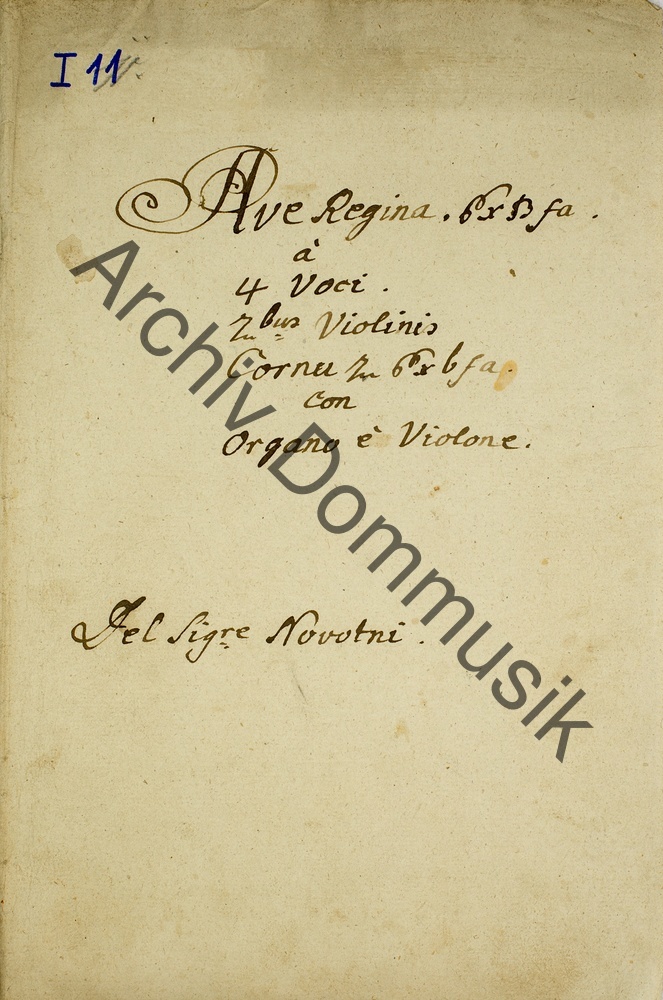 I 11
Ave Regina. Ex B fa.
à
4 Voci.
2bus Violinis
Cornu 2 Ex b fa.
con
Organo è Violone.
Del Sigre Novotni.
Archiv Dommusik